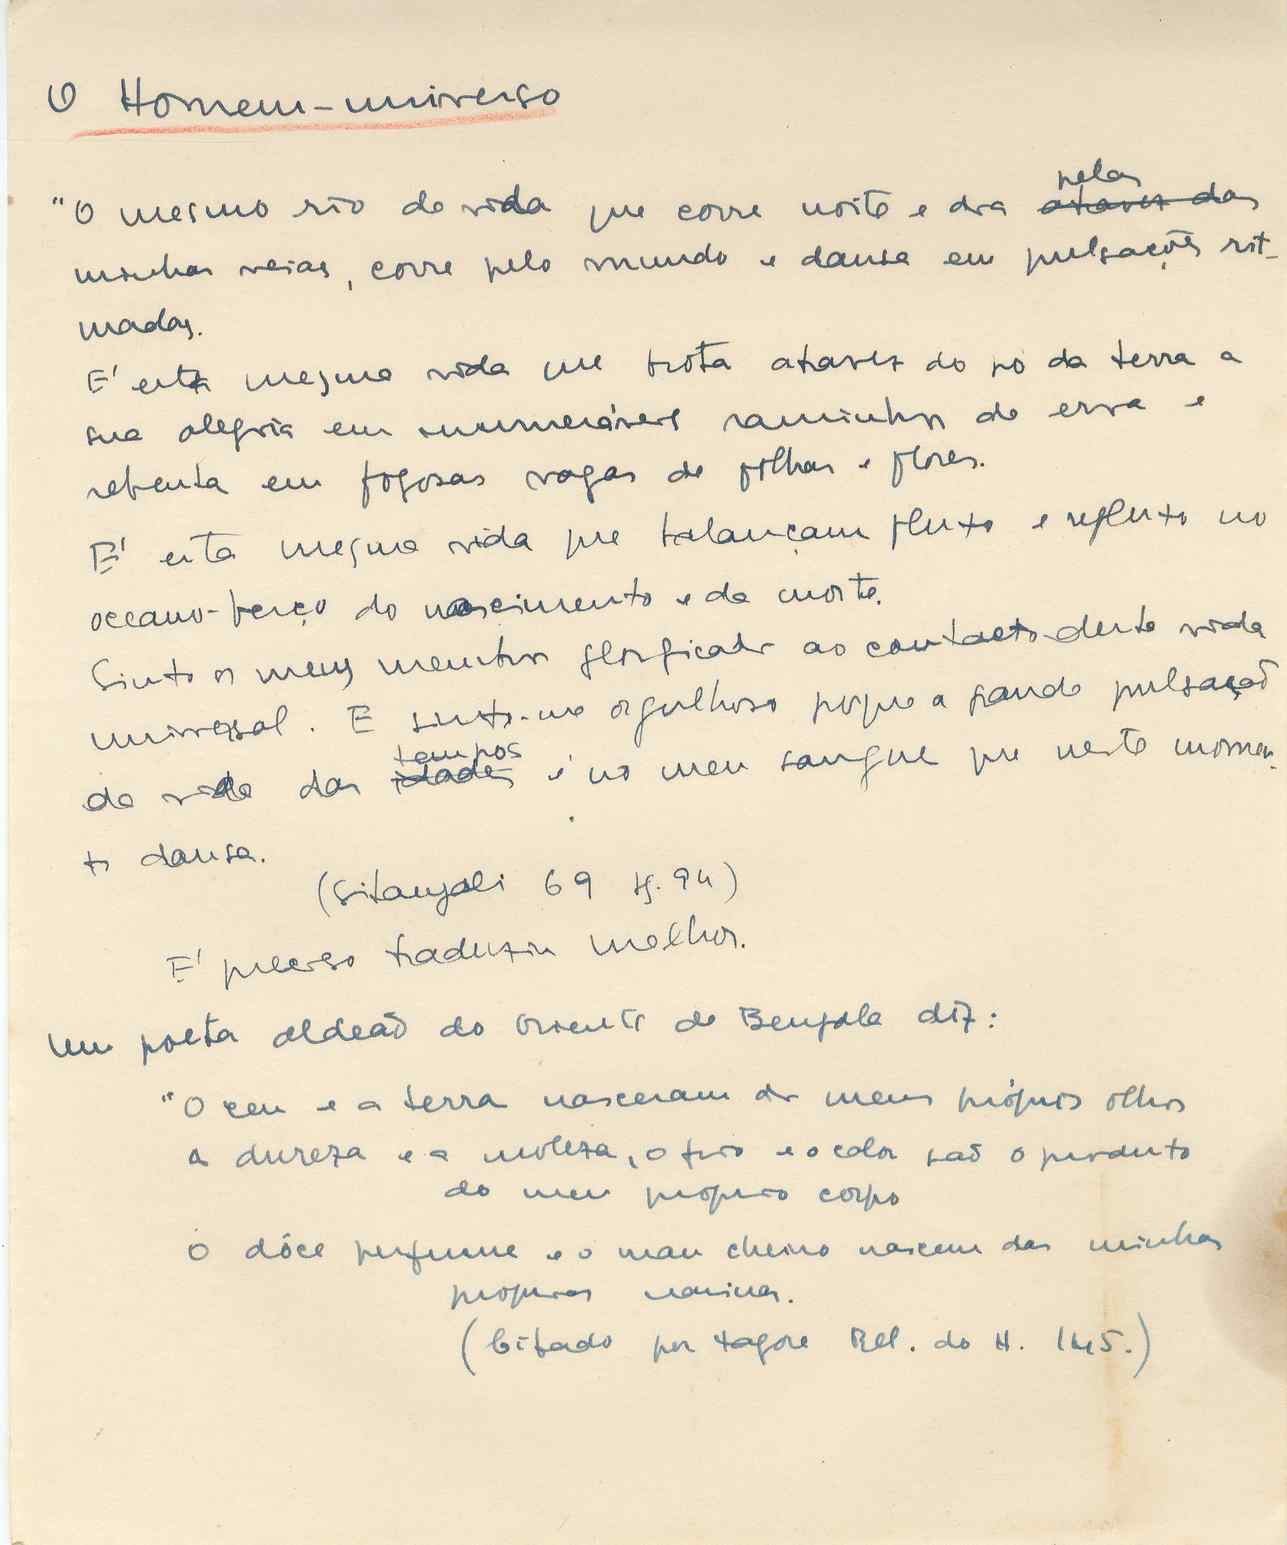 O Homem-universo
"O mesmo rio de vida que corre noite e dia pelas ~~atravez das~~
minhas veias, corre pelo mundo e dansa em pulsações rit-
madas.
E' esta mesma vida que brota atravez do pó da terra a
sua alegria em inumeráveis raminhos de erva e
rebenta em fogosas vagas de folhas e flores.
E' esta mesma vida que balançam fluxo e refluxo no
oceano-berço do nascimento e da morte.
Sinto os meus membros glorificados ao contacto desta vida
universal. E sinto-me orgulhoso porque a grande pulsação
da vida dos tempos ~~idades~~ é no meu sangue que neste momen-
to dansa.
(Gitanjali 69 pg. 94)
E' preciso traduzir melhor.
Um poeta aldeão do Oriente de Bengala diz:
"O ceu e a terra nasceram dos meus próprios olhos
a dureza e a moleza, o frio e o calor são o producto
do meu proprio corpo
O dôce perfume e o mau cheiro nascem das minhas
proprias narinas.
(Citado por Tagore Rel. do H. 145.)